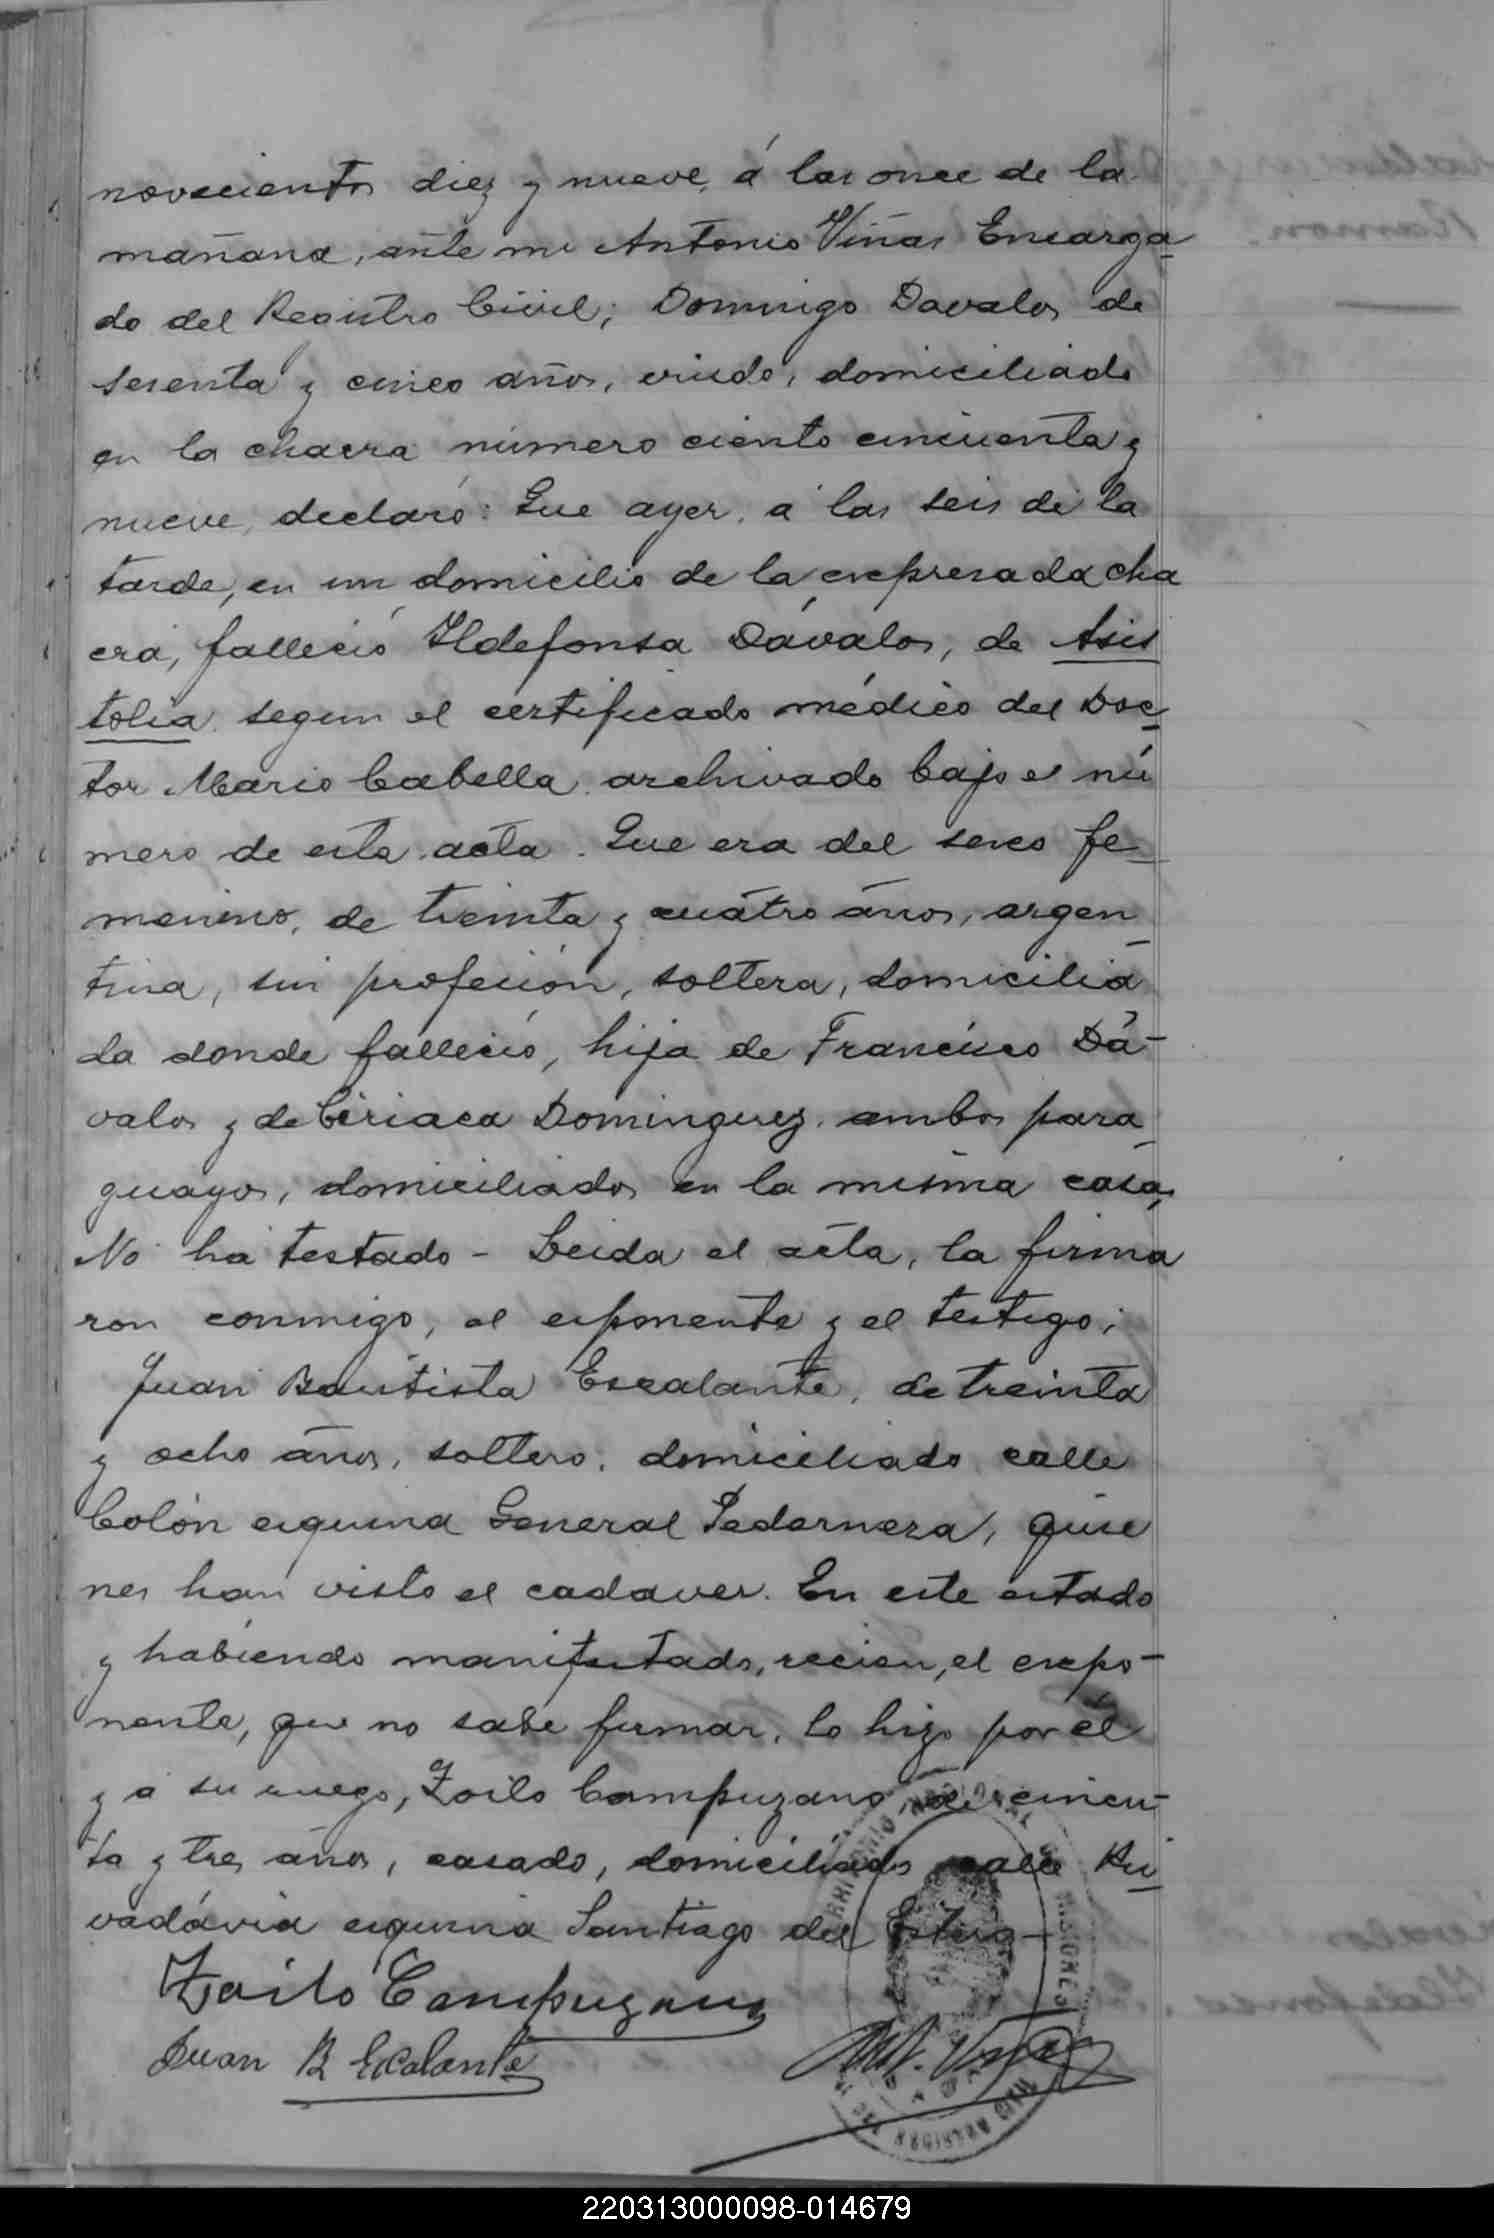 novecientos diez y nueve, á las once de la
mañana, ante mi Antonio Viñas Encarga
do del Registro Civil; Domingo Davalos de
sesenta y cinco años, viudo, domiciliado
en la chacra número ciento cincuenta y
nueve, declaró: Que ayer, á las seis de la
tarde, en un domicilio de la expresada cha
cra, falleció Yldefonsa Dávalos, de Asis
tolia, segun el certificado médico del Doc
tor Mario Cabella archivado bajo el nú
mero de esta acta. Que era del sexo fe
menino, de treinta y cuatro años, argen
tina, sin profesión, soltera, domicilia
da donde falleció, hija de Francisco Dá-
valos y de Ciriaca Dominguez, ambos para
guayos, domiciliados en la misma casa,
No ha testado - Leida el acta, la firma
ron conmigo, el exponente y el testigo;
Juan Bautista Escalante, de treinta
y ocho años, soltero, domiciliado calle
Colón esquina General Pedernera, quie
nes han visto el cadaver. En este estado
y habiendo manifestado, recien, el expo-
nente, que no sabe firmar, lo hizo por él
y a su ruego, Zoilo Campuzano, de cincu-
ta y tres años, casado, domiciliado calle Ri
vadávia esquina Santiago del Estero-
Zoilo Campuzano
Juan B Escalante
MISIONES
220313000098-014679